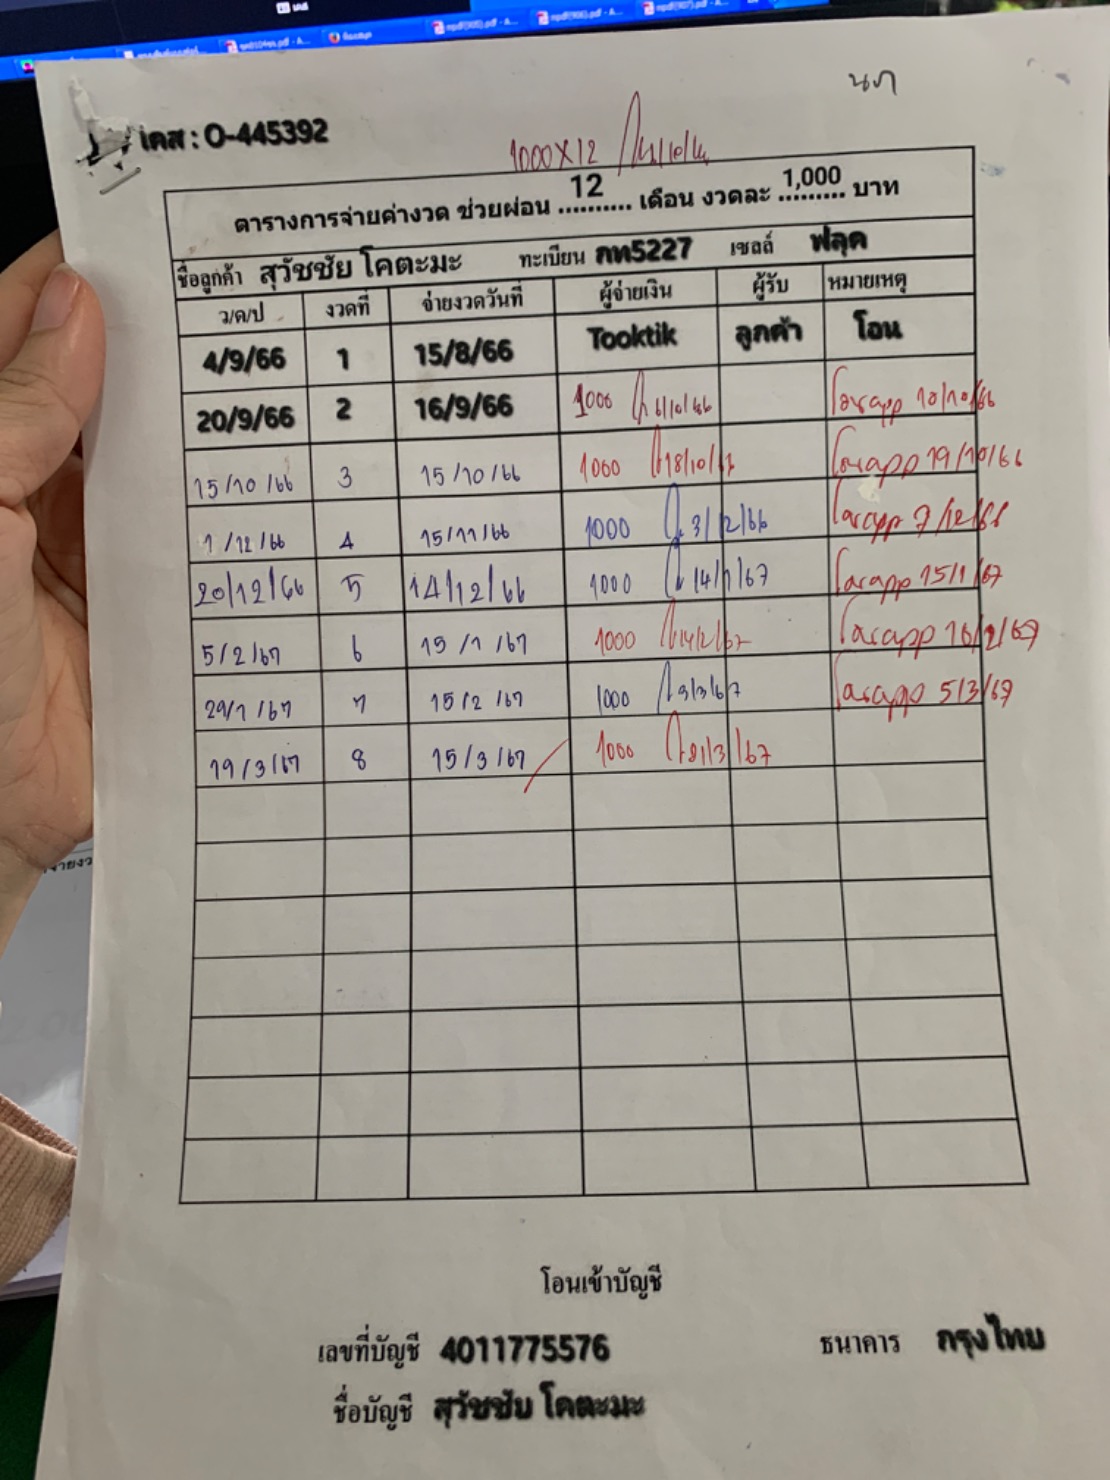 นภ
เคส : O-445392
1000X12
ตารางการจ่ายค่างวด ช่วยผ่อน ....12.... เดือน งวดละ ...1,000... บาท
ชื่อลูกค้า สุวัชชัย โคตะมะ ทะเบียน กท5227 เซลล์ ฟลุค
ว/ด/ป งวดที่ จ่ายงวดวันที่ ผู้จ่ายเงิน ผู้รับ หมายเหตุ
4/9/66 1 15/8/66 Tooktik ลูกค้า โอน
20/9/66 2 16/9/66 1000 6/10/66 โอนapp 10/10/66
15/10/66 3 15/10/66 1000 18/10/67 โอนapp 19/10/66
1/12/66 4 15/11/66 1000 3/12/66 โอนapp 7/12/66
20/12/66 5 14/12/66 1000 14/1/67 โอนapp 15/1/67
5/2/67 6 15/1/67 1000 14/2/67 โอนapp 16/2/67
29/1/67 7 15/2/67 1000 3/3/67 โอนapp 5/3/67
19/3/67 8 15/3/67 1000 21/3/67
โอนเข้าบัญชี
เลขที่บัญชี 4011775576 ธนาคาร กรุงไทย
ชื่อบัญชี สุวัชชัย โคตะมะ